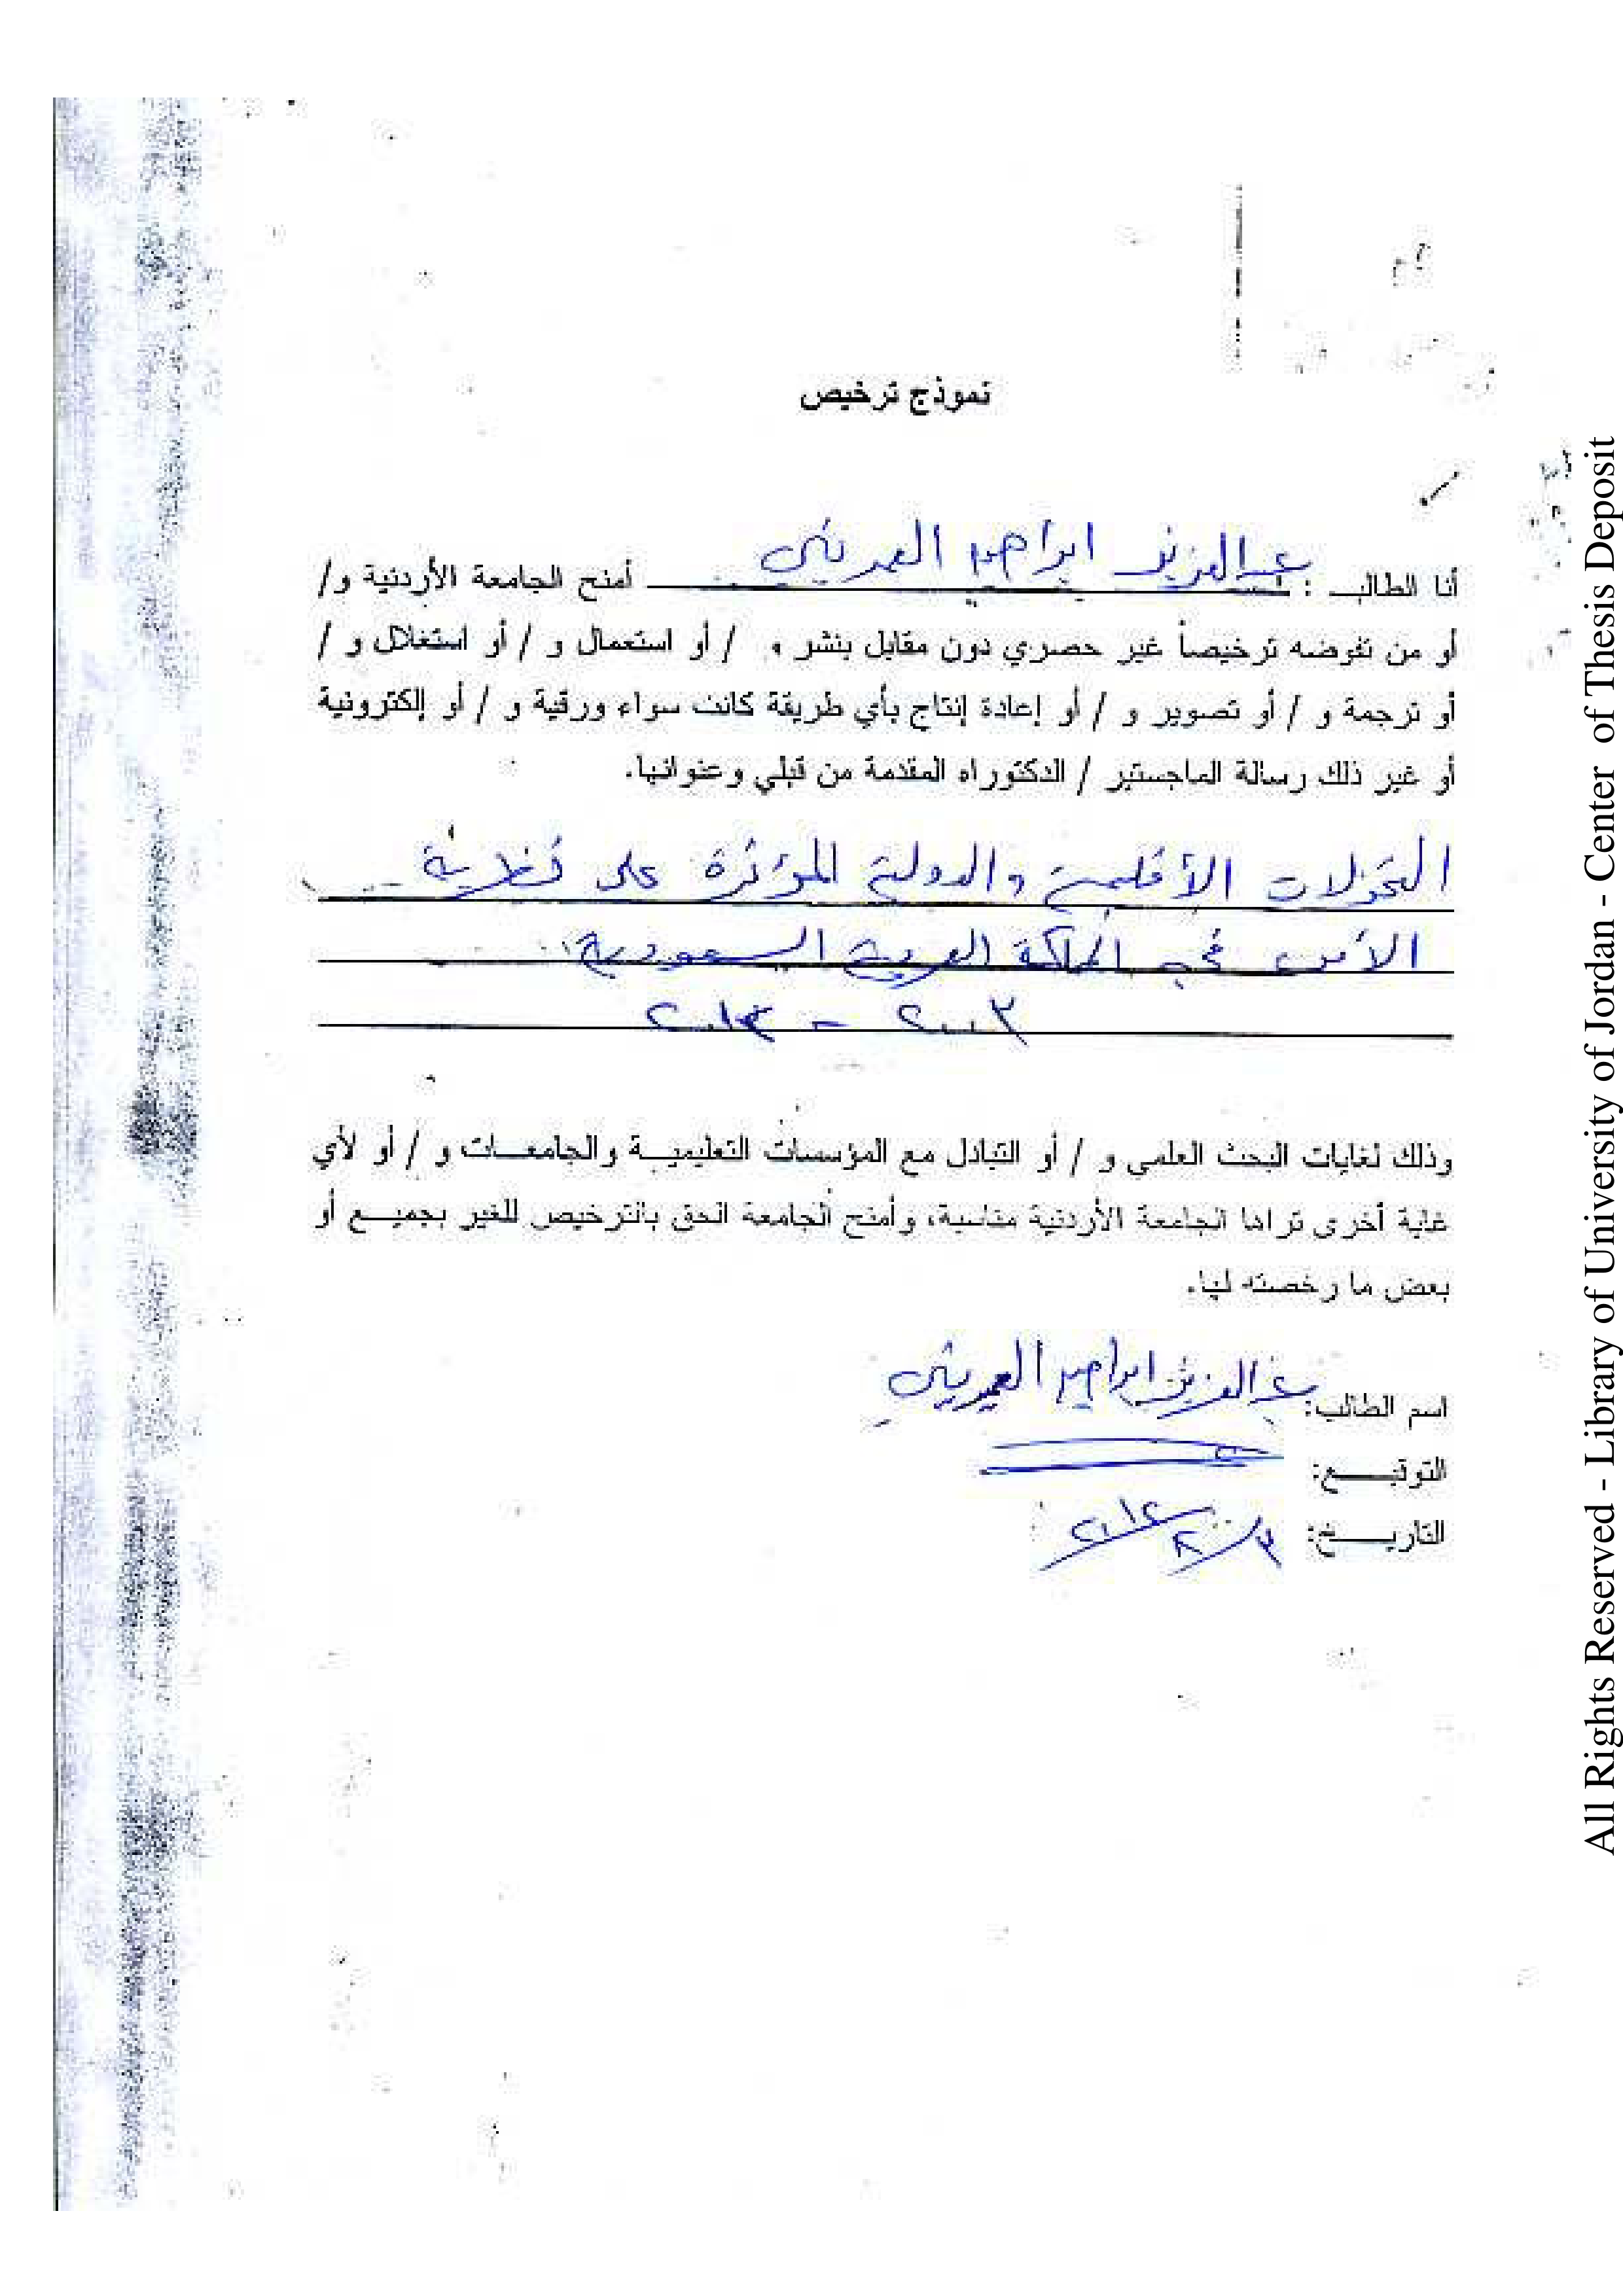 نموذج ترخيص
أنا الطالب : عبدالعزيز ابراهيم العريني أمنح الجامعة الأردنية و/
أو من تفوضه ترخيصاً غير حصري دون مقابل بنشر و / أو استعمال و / أو استغلال و /
أو ترجمة و / أو تصوير و / أو إعادة إنتاج بأي طريقة كانت سواء ورقية و / أو إلكترونية
أو غير ذلك رسالة الماجستير / الدكتوراه المقدمة من قبلي وعنوانها.
التحولات الأقليمية والدولية المؤثرة على نظرية
الأمن في المملكة العربية السعودية
٢٠٠٣ -
وذلك لغايات البحث العلمي و / أو التبادل مع المؤسسات التعليمية والجامعات و / أو لأي
غاية أخرى تراها الجامعة الأردنية مناسبة، وأمنح الجامعة الحق بالترخيص للغير بجميع أو
بعض ما رخصته لها.
اسم الطالب: عبدالعزيز ابراهيم العريني
التوقيع:
التاريخ:
All Rights Reserved - Library of University of Jordan - Center of Thesis Deposit